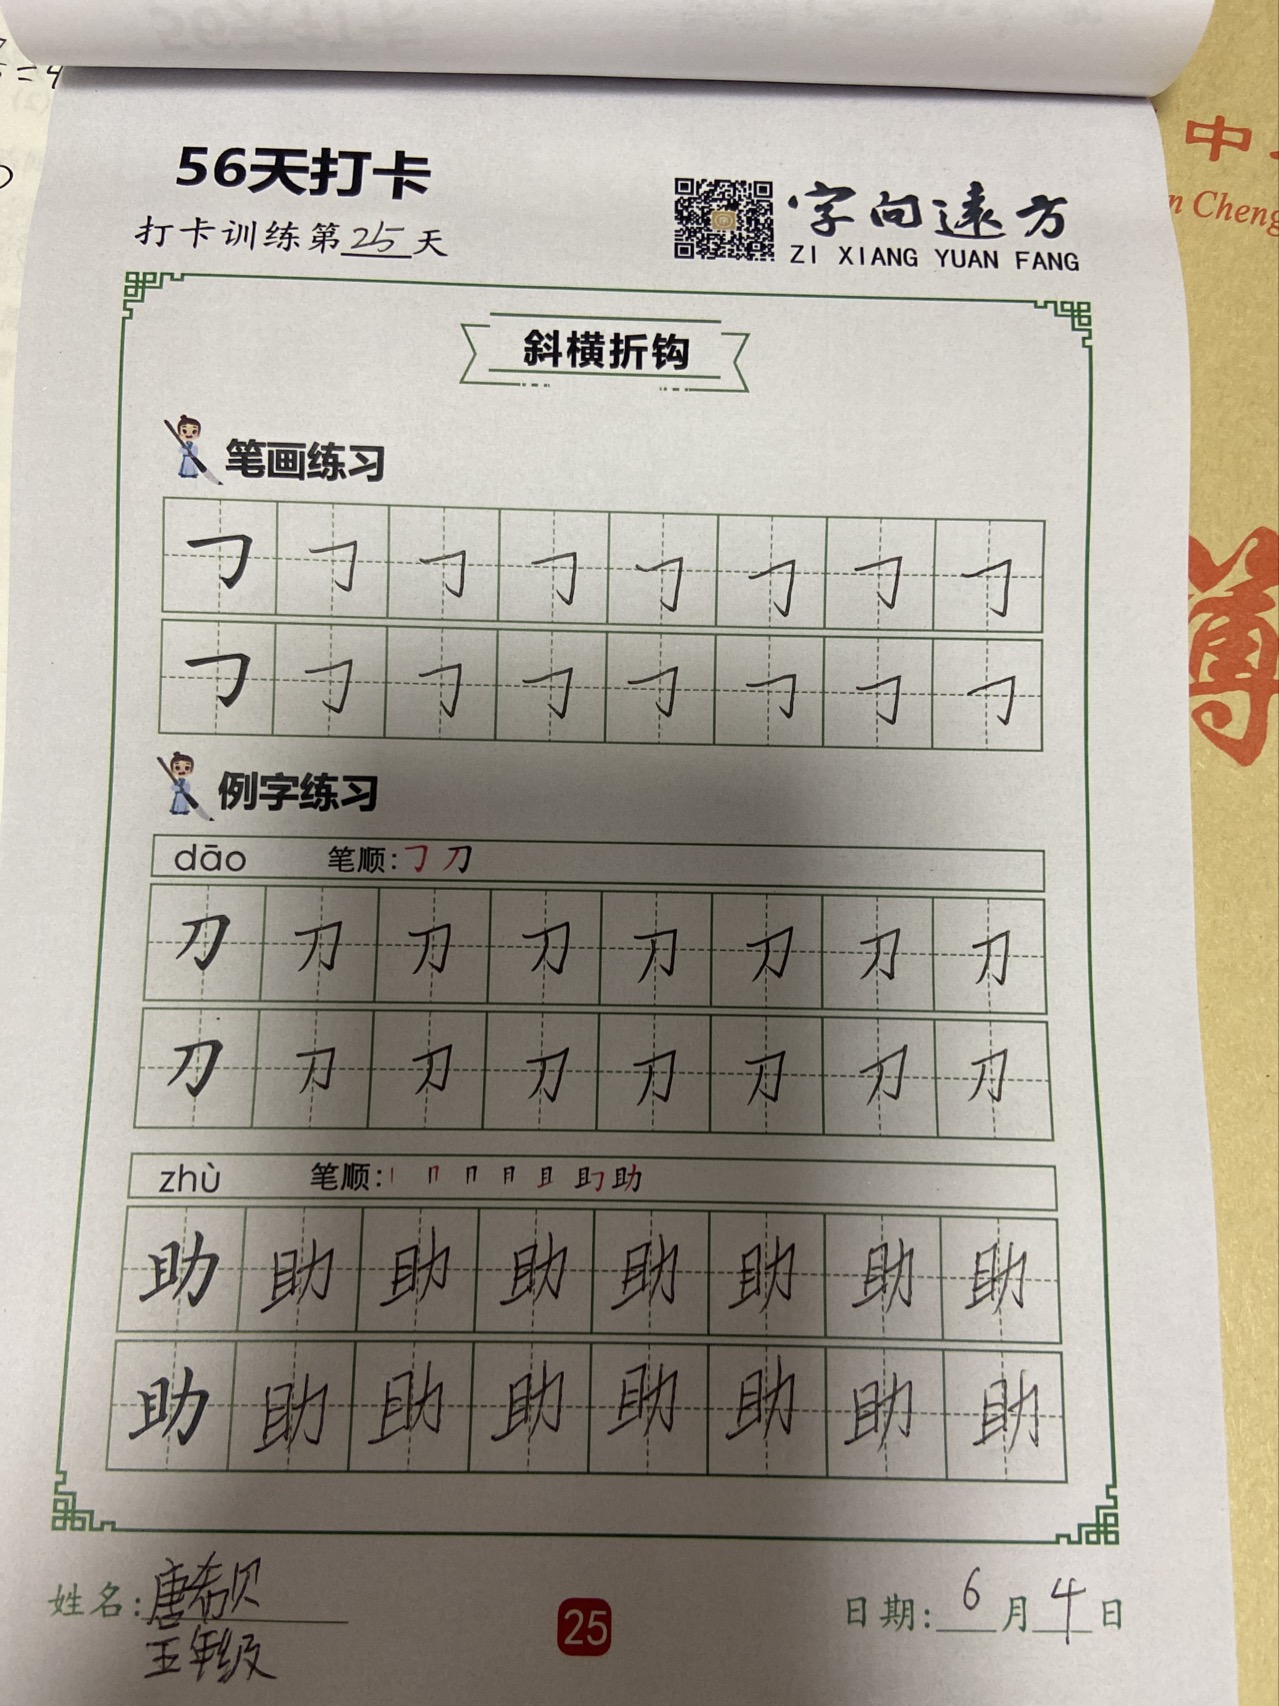 = 4
56天打卡
打卡训练第25天
字向远方
ZI XIANG YUAN FANG
中
n Cheng
博
斜横折钩
笔画练习
㇆ ㇆ ㇆ ㇆ ㇆ ㇆ ㇆ ㇆
㇆ ㇆ ㇆ ㇆ ㇆ ㇆ ㇆ ㇆
例字练习
dāo 笔顺:㇆ 刀
刀 刀 刀 刀 刀 刀 刀 刀
刀 刀 刀 刀 刀 刀 刀 刀
zhù 笔顺:丨 冂 冂 月 且 助 助
助 助 助 助 助 助 助 助
助 助 助 助 助 助 助 助
姓名:唐希贝
五年级
25
日期:6月4日